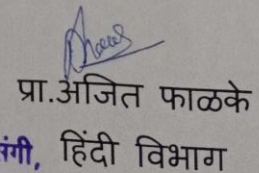 प्रा.अजित फाळके
हिंदी विभाग